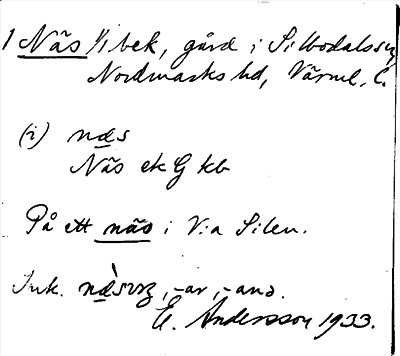 1 Näs 1/1 bek, gård i Silbodals sn,
Nordmarks hd, Värml. l.
(i) næs
Näs ek G kb
På ett näs i V:a Silen.
Ink. -ar, -anə.
E. Andersson 1933.